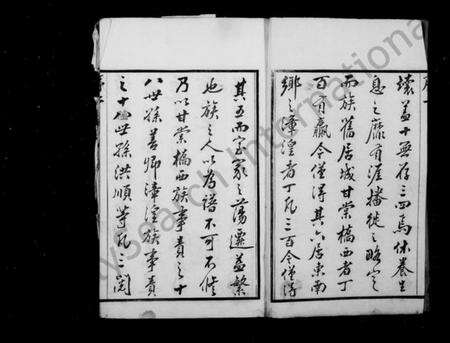 壞蓋十無存三四焉休養生
息之靡有涯播徙之略定
而族舊居城甘棠橋西者丁
百有贏今僅得其六居東南
鄉之漳湟者丁瓦三百今僅得
其五而室家之蕩遷益繁
也族之人以為譜不可不修
乃以甘棠橋西族事責之十
八世孫善卿漳湟族事責
之十世孫洪順等瓦三閱